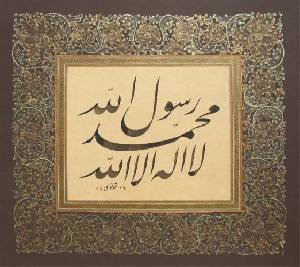 رسول الله
محمد
لا اله الا الله